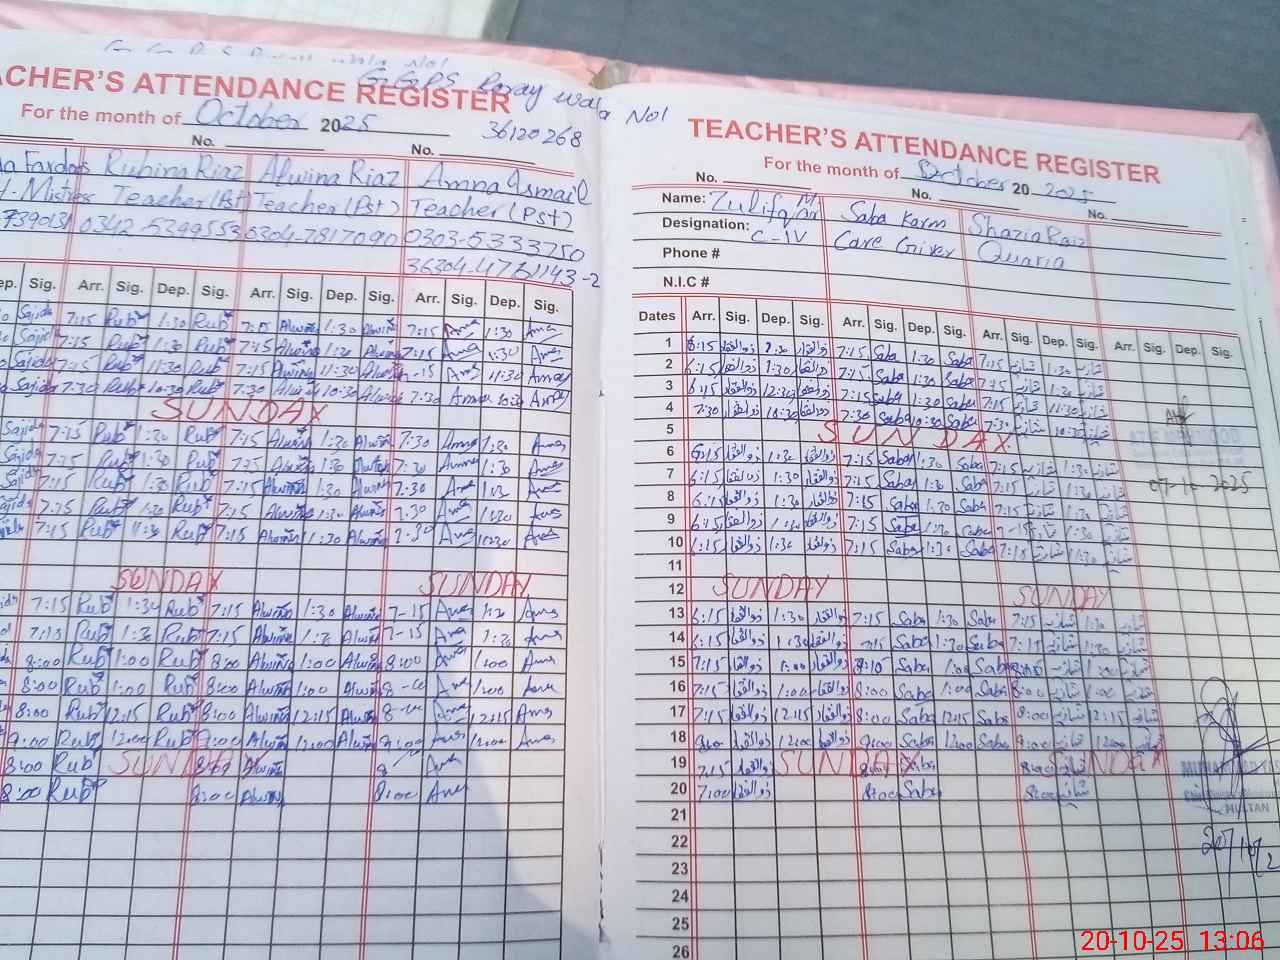 GGPS Raray wala No1
TEACHER'S ATTENDANCE REGISTER
For the month of October 2025
36120268
No. No.
Fardos Rubina Riaz Alwina Riaz Amna Ismail
Mistress Teacher (Pst) Teacher (Pst) Teacher (Pst)
739013 0342-5299553 0304-7817090 0303-5333750
Sig. Arr. Dep. Sig. Arr. Sig. Dep. Sig. Arr. Sig. Dep. Sig.
Sajida 7:15 Rub 1:30 Rub 7:15 Alwina 1:30 Alwina 7:15 Ama 1:30 Ama
Sajida 7:15 Rub 1:30 Rub 7:15 Alwina 1:30 Alwina 7:15 Ama 1:30 Ama
Sajida 7:15 Rub 11:30 Rub 7:15 Alwina 11:30 Alwina 7-15 Ama 11:30 Ama
Sajida 7:30 Rub 10:30 Rub 7:30 Alwina 10:30 Alwina 7:30 Ama 10:30 Ama
SUNDAY
Sajida 7:15 Rub 1:30 Rub 7:15 Alwina 1:30 Alwina 7:30 Ama 1:30 Ama
Sajida 7:15 Rub 1:30 Rub 7:15 Alwina 1:30 Alwina 7:30 Ama 1:30 Ama
Sajida 7:15 Rub 1:30 Rub 7:15 Alwina 1:30 Alwina 7:30 Ama Ama
Sajida 7:15 Rub 1:30 Rub 7:15 Alwina 1:30 Alwina 7:30 Ama Ama
7:15 Rub 11:30 Rub 7:15 Alwina 1:30 Alwina 7:30 Ama Ama
SUNDAY SUNDAY
7:15 Rub 1:30 Rub 7:15 Alwina 1:30 Alwina 7-15 Ama 1:30 Ama
7:15 Rub 1:30 Rub 7:15 Alwina 1:30 Alwina 7-15 Ama 1:30 Ama
8:00 Rub 1:00 Rub 8:00 Alwina 1:00 Alwina 8:00 Ama 1:00 Ama
8:00 Rub 1:00 Rub 8:00 Alwina 1:00 Alwina 8-00 Ama 1:00 Ama
8:00 Rub 12:15 Rub 8:00 Alwina 12:15 Alwina 8-00 Ama 12:15 Ama
9:00 Rub 12:00 Rub 9:00 Alwina 12:00 Alwina 9:00 Ama 12:00 Ama
8:00 Rub SUNDAY Alwina 8 Ama
8:00 Rub 8:00 Alwina 8:00 Ama
TEACHER'S ATTENDANCE REGISTER
For the month of October 20 2025
No. No. No.
Name: Zulifqar Saba Karm Shazia Riaz
Designation: C-IV Care Giver Quaria
Phone #
N.I.C #
Dates Arr. Sig. Dep. Sig. Arr. Sig. Dep. Sig. Arr. Sig. Dep. Sig. Arr. Sig. Dep. Sig.
1 6:15 ذوالفقار 1:30 ذوالفقار 7:15 Saba 1:30 Saba 7:15 شازیہ 1:30 شازیہ
2 6:15 ذوالفقار 1:30 ذوالفقار 7:15 Saba 1:30 Saba 7:15 شازیہ 1:30 شازیہ
3 6:15 ذوالفقار 12:30 ذوالفقار 7:15 Saba 1:30 Saba 7:15 شازیہ 11:30 شازیہ
4 7:30 ذوالفقار 10:30 ذوالفقار 7:30 Saba 10:30 Saba 7:30 شازیہ 10:30 شازیہ
5 SUNDAY
6 6:15 ذوالفقار 1:30 ذوالفقار 7:15 Saba 1:30 Saba 7:15 شازیہ 1:30 شازیہ
7 6:15 ذوالفقار 1:30 ذوالفقار 7:15 Saba 1:30 Saba 7:15 شازیہ 1:30 شازیہ 07-10-2025
8 6:15 ذوالفقار 1:30 ذوالفقار 7:15 Saba 1:30 Saba 7:15 شازیہ 1:30 شازیہ
9 6:15 ذوالفقار 1:30 ذوالفقار 7:15 Saba 1:30 Saba 7-15 شازیہ 1:30 شازیہ
10 6:15 ذوالفقار 1:30 ذوالفقار 7:15 Saba 1:30 Saba 7:15 شازیہ 11:30 شازیہ
11
12 SUNDAY SUNDAY
13 6:15 ذوالفقار 1:30 ذوالفقار 7:15 Saba 1:30 Saba 7:15 شازیہ 1:30 شازیہ
14 6:15 ذوالفقار 1:30 ذوالفقار 7:15 Saba 1:30 Saba 7:15 شازیہ 1:30 شازیہ
15 7:15 ذوالفقار 1:00 ذوالفقار Saba 1:00 Saba شازیہ 1:00 شازیہ
16 7:15 ذوالفقار 1:00 ذوالفقار 8:00 Saba 1:00 Saba 8:00 شازیہ 1:00 شازیہ
17 7:15 ذوالفقار 12:15 ذوالفقار 8:00 Saba 12:15 Saba 8:00 شازیہ 12:15 شازیہ
18 9:00 ذوالفقار 12:00 ذوالفقار 9:00 Saba 12:00 Saba 9:00 شازیہ 12:00 شازیہ
19 7:15 ذوالفقار SUNDAY Saba 8:00 شازیہ SUNDAY
20 7:00 ذوالفقار 8:00 Saba 8:00 شازیہ
MULTAN
21
22
23
24
25
26
20-10-25 13:06